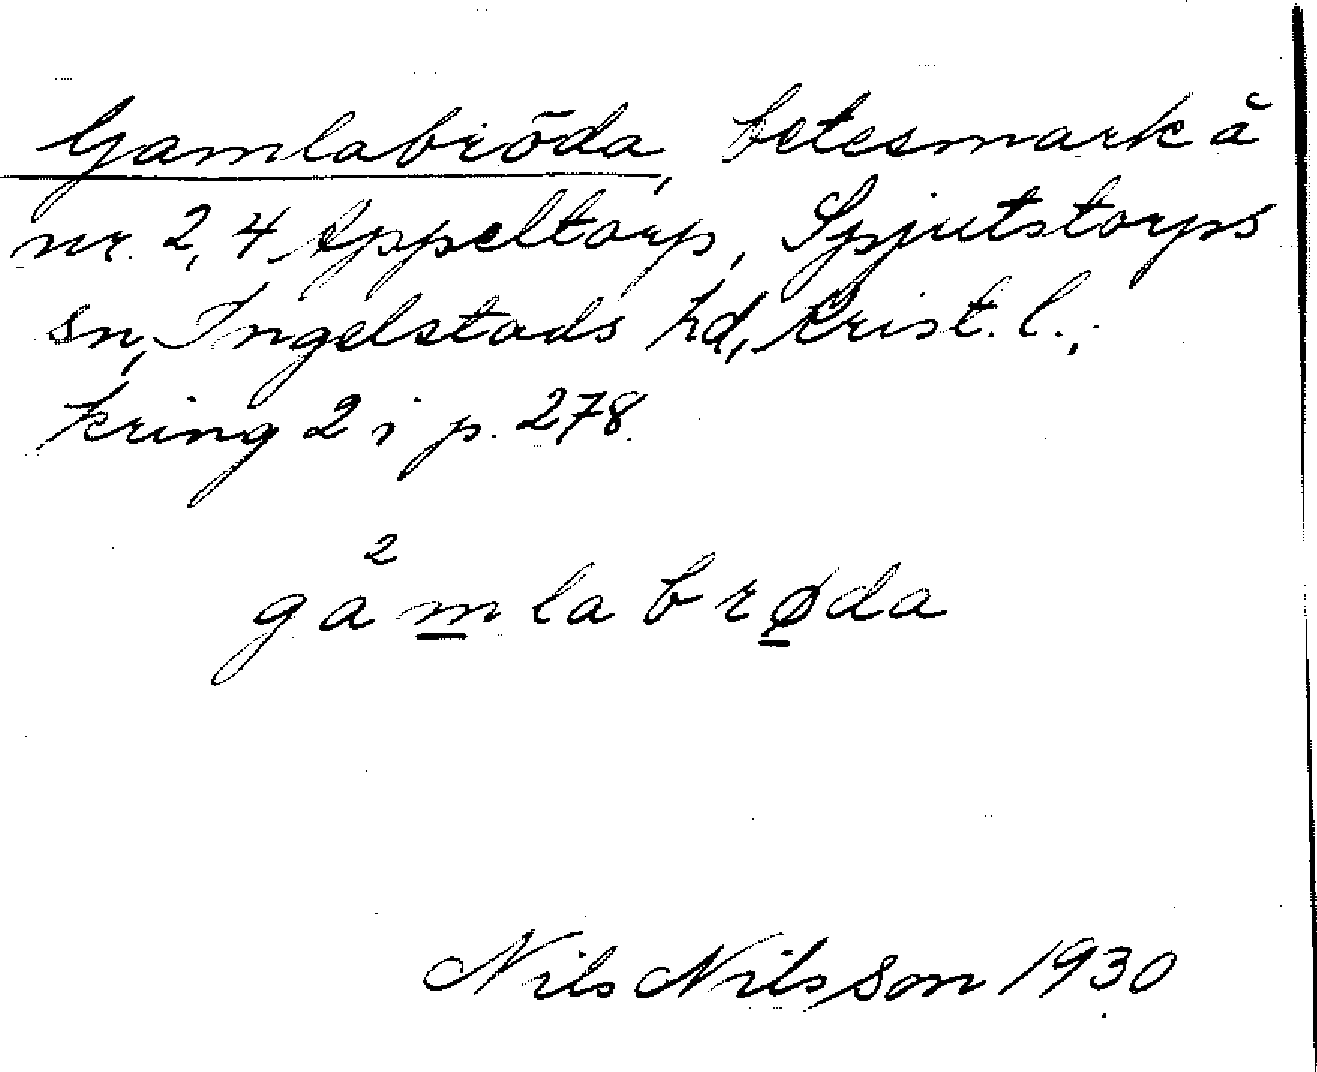 Gamlabröda, betesmark å
nr. 2, 4 Appeltorp, Spjutstorps
sn, Ingelstads hd, Krist. l.,
kring 2 i p. 278.
2
gåmlabrøda
Nils Nilsson 1930